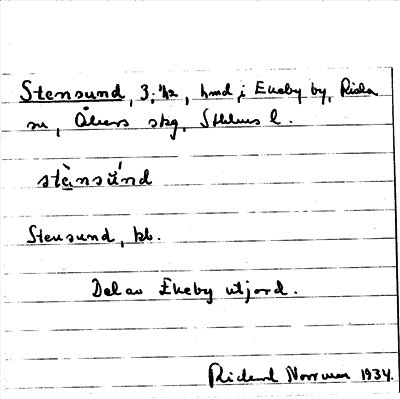 Stensund, 3:½, hmd i Ekeby by, Risla
sn, Åkers skg, Sthlms l.
stènsún̆d
Stensund, kb.
Del av Ekeby utjord.
Rickard Norrman 1934.